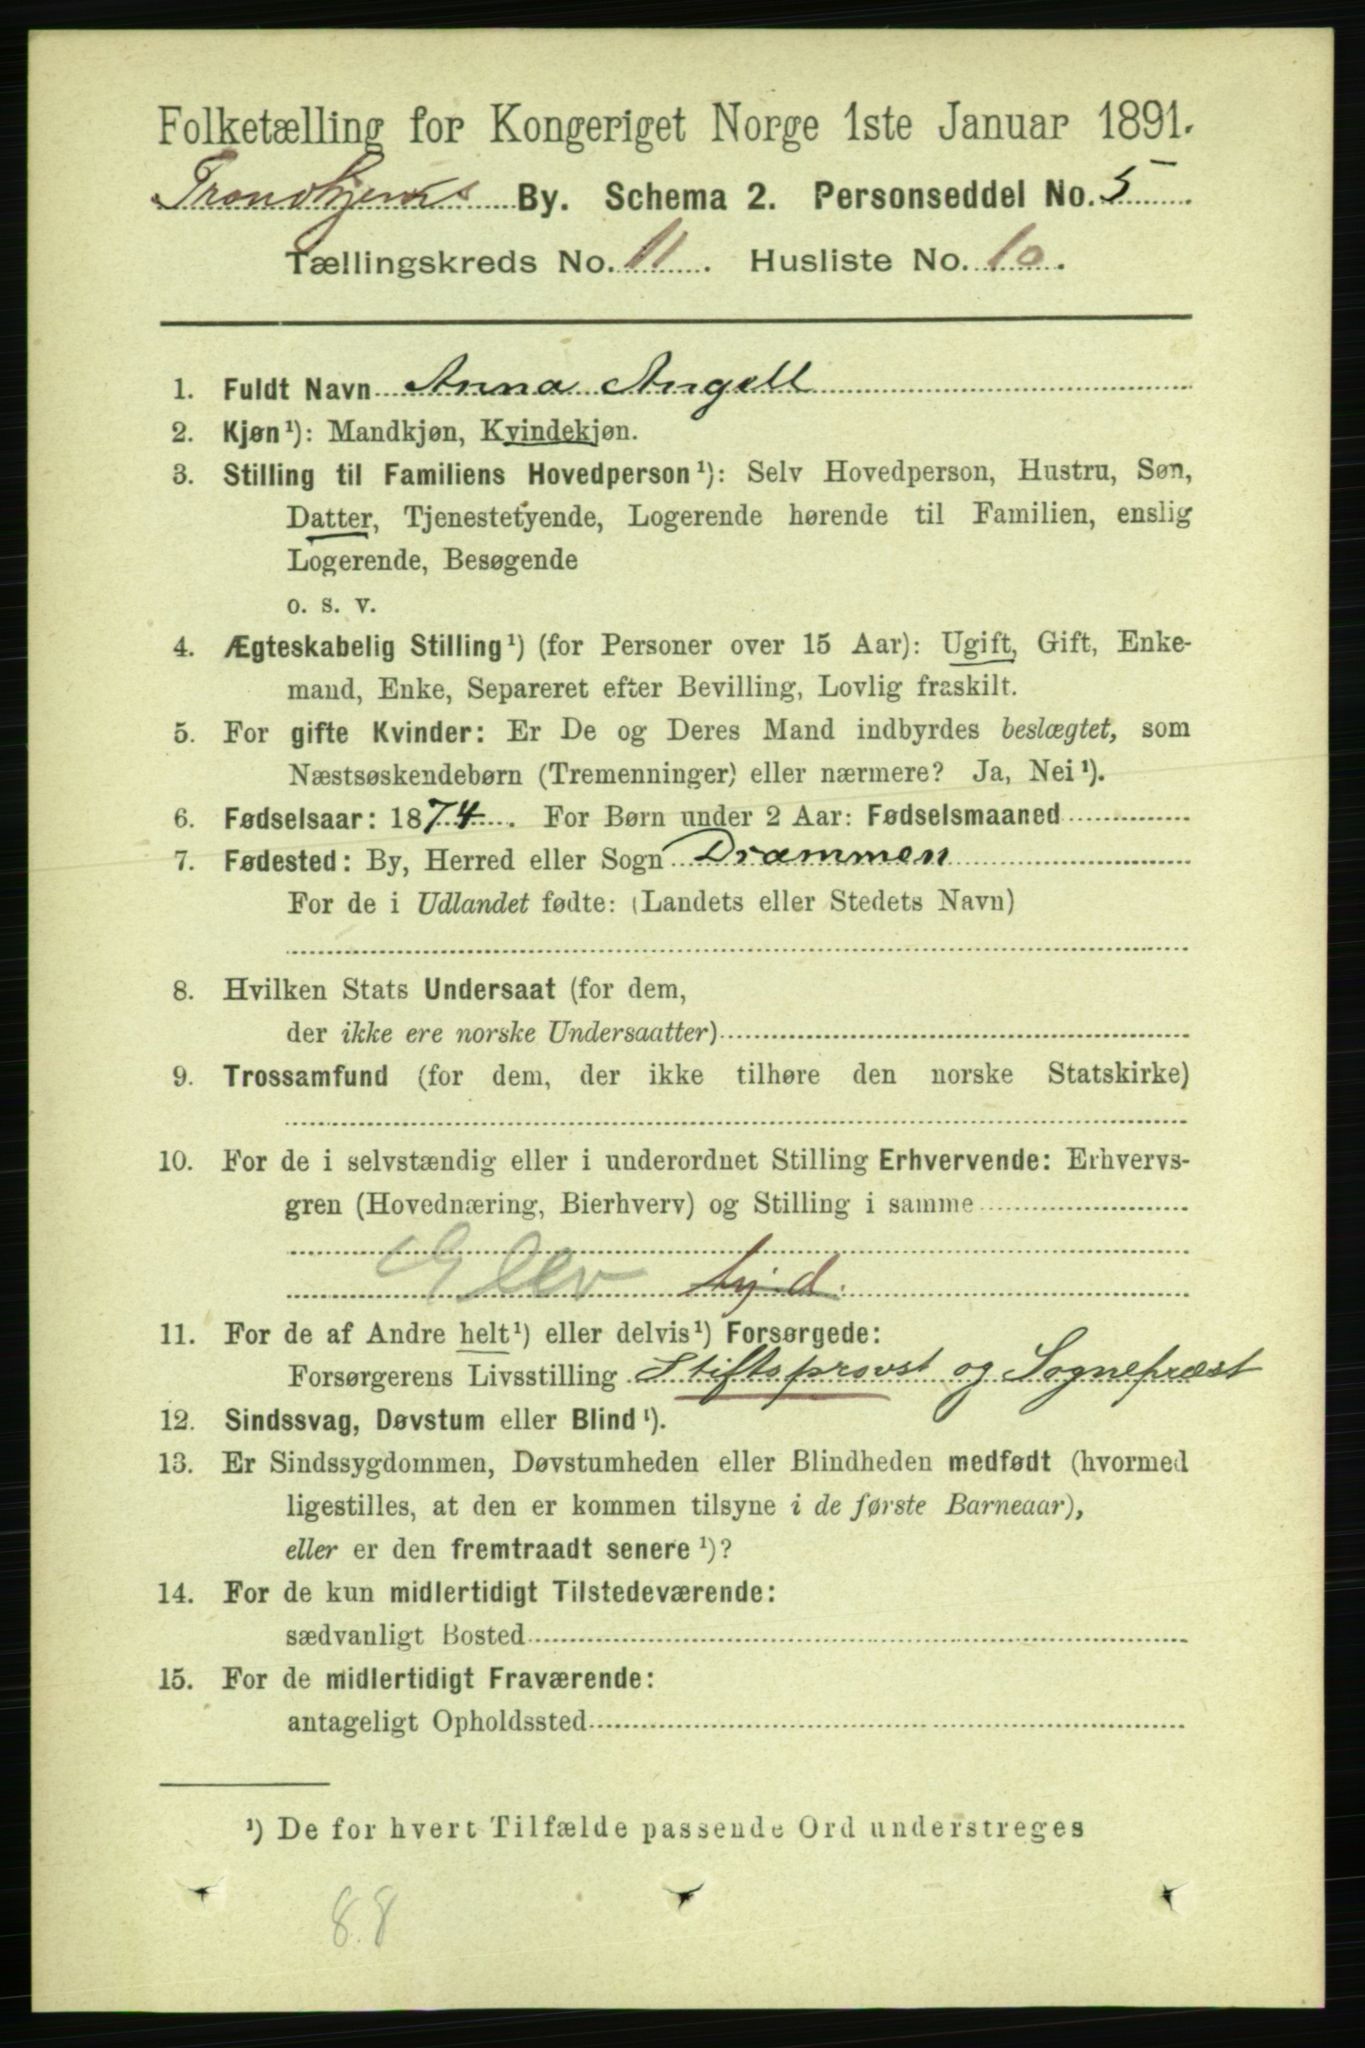 Folketælling for Kongeriget Norge 1ste Januar 1891.
Trondhjems By. Schema 2. Personseddel No. 5
Tællingskreds No. 11. Husliste No. 10.
1. Fuldt Navn Anna Angell
2. Kjøn¹): Mandkjøn, Kvindekjøn.
3. Stilling til Familiens Hovedperson¹): Selv Hovedperson, Hustru, Søn,
Datter, Tjenestetyende, Logerende hørende til Familien, enslig
Logerende, Besøgende
o. s. v.
4. Ægteskabelig Stilling¹) (for Personer over 15 Aar): Ugift, Gift, Enke-
mand, Enke, Separeret efter Bevilling, Lovlig fraskilt.
5. For gifte Kvinder: Er De og Deres Mand indbyrdes beslægtet, som
Næstsøskendebørn (Tremenninger) eller nærmere? Ja, Nei¹).
6. Fødselsaar: 1874. For Børn under 2 Aar: Fødselsmaaned
7. Fødested: By, Herred eller Sogn Drammen
For de i Udlandet fødte: (Landets eller Stedets Navn)
8. Hvilken Stats Undersaat (for dem,
der ikke ere norske Undersaatter)
9. Trossamfund (for dem, der ikke tilhøre den norske Statskirke)
10. For de i selvstændig eller i underordnet Stilling Erhvervende: Erhvervs-
gren (Hovednæring, Bierhverv) og Stilling i samme
Elev
11. For de af Andre helt¹) eller delvis¹) Forsørgede:
Forsørgerens Livsstilling Stiftsprovst og Sognepræst
12. Sindssvag, Døvstum eller Blind¹).
13. Er Sindssygdommen, Døvstumheden eller Blindheden medfødt (hvormed
ligestilles, at den er kommen tilsyne i de første Barneaar),
eller er den fremtraadt senere¹)?
14. For de kun midlertidigt Tilstedeværende:
sædvanligt Bosted
15. For de midlertidigt Fraværende:
antageligt Opholdssted
¹) De for hvert Tilfælde passende Ord understreges
88